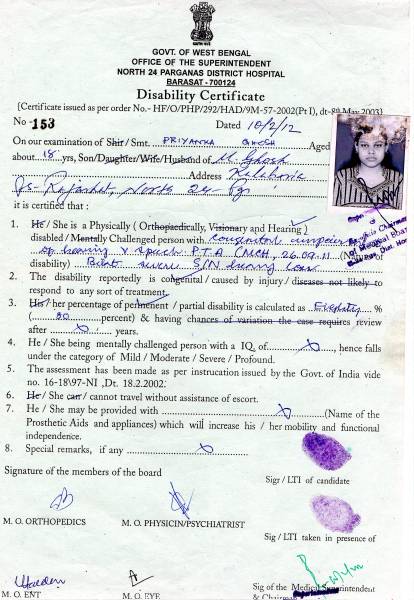 GOVT. OF WEST BENGAL
OFFICE OF THE SUPERINTENDENT
NORTH 24 PARGANAS DISTRICT HOSPITAL
BARASAT - 700124
Disability Certificate
[Certificate issued as per order No.- HF/O/PHP/292/HAD/9M-57-2002(Pt I), dt-8th May 2003]
No - 153 Dated 16/2/12
On our examination of Shri/ Smt. PRIYANKA GHOSH Aged
about 18 yrs, Son/Daughter/Wife/Husband of M. Ghosh
Address
PS- Rajarhat, North 24-
it is certified that :
1. He / She is a Physically ( Orthopaedically, Visionary and Hearing )
disabled / Mentally Challenged person with congenital
of hearing & speech P.T.A (MCH, 26.09.11
disability) S/N hearing loss
2. The disability reportedly is congenital / caused by injury / diseases not likely to
respond to any sort of treatment.
3. His/ her percentage of permanent / partial disability is calculated as Eighty %
( 80 percent) & having chances of variation the case requires review
after x years.
4. He / She being mentally challenged person with a IQ of x, hence falls
under the category of Mild / Moderate / Severe / Profound.
5. The assessment has been made as per instrucation issued by the Govt. of India vide
no. 16-18\97-NI ,Dt. 18.2.2002.
6. He/ She can / cannot travel without assistance of escort.
7. He / She may be provided with x (Name of the
Prosthetic Aids and appliances) which will increase his / her mobility and functional
independence.
8. Special remarks, if any x
Signature of the members of the board
Sigr / LTI of candidate
M. O. ORTHOPEDICS M. O. PHYSICIN/PSYCHIATRIST
Sig / LTI taken in presence of
M. O. ENT M. O. EYE Sig of the Medical Superintendent
& Chairman